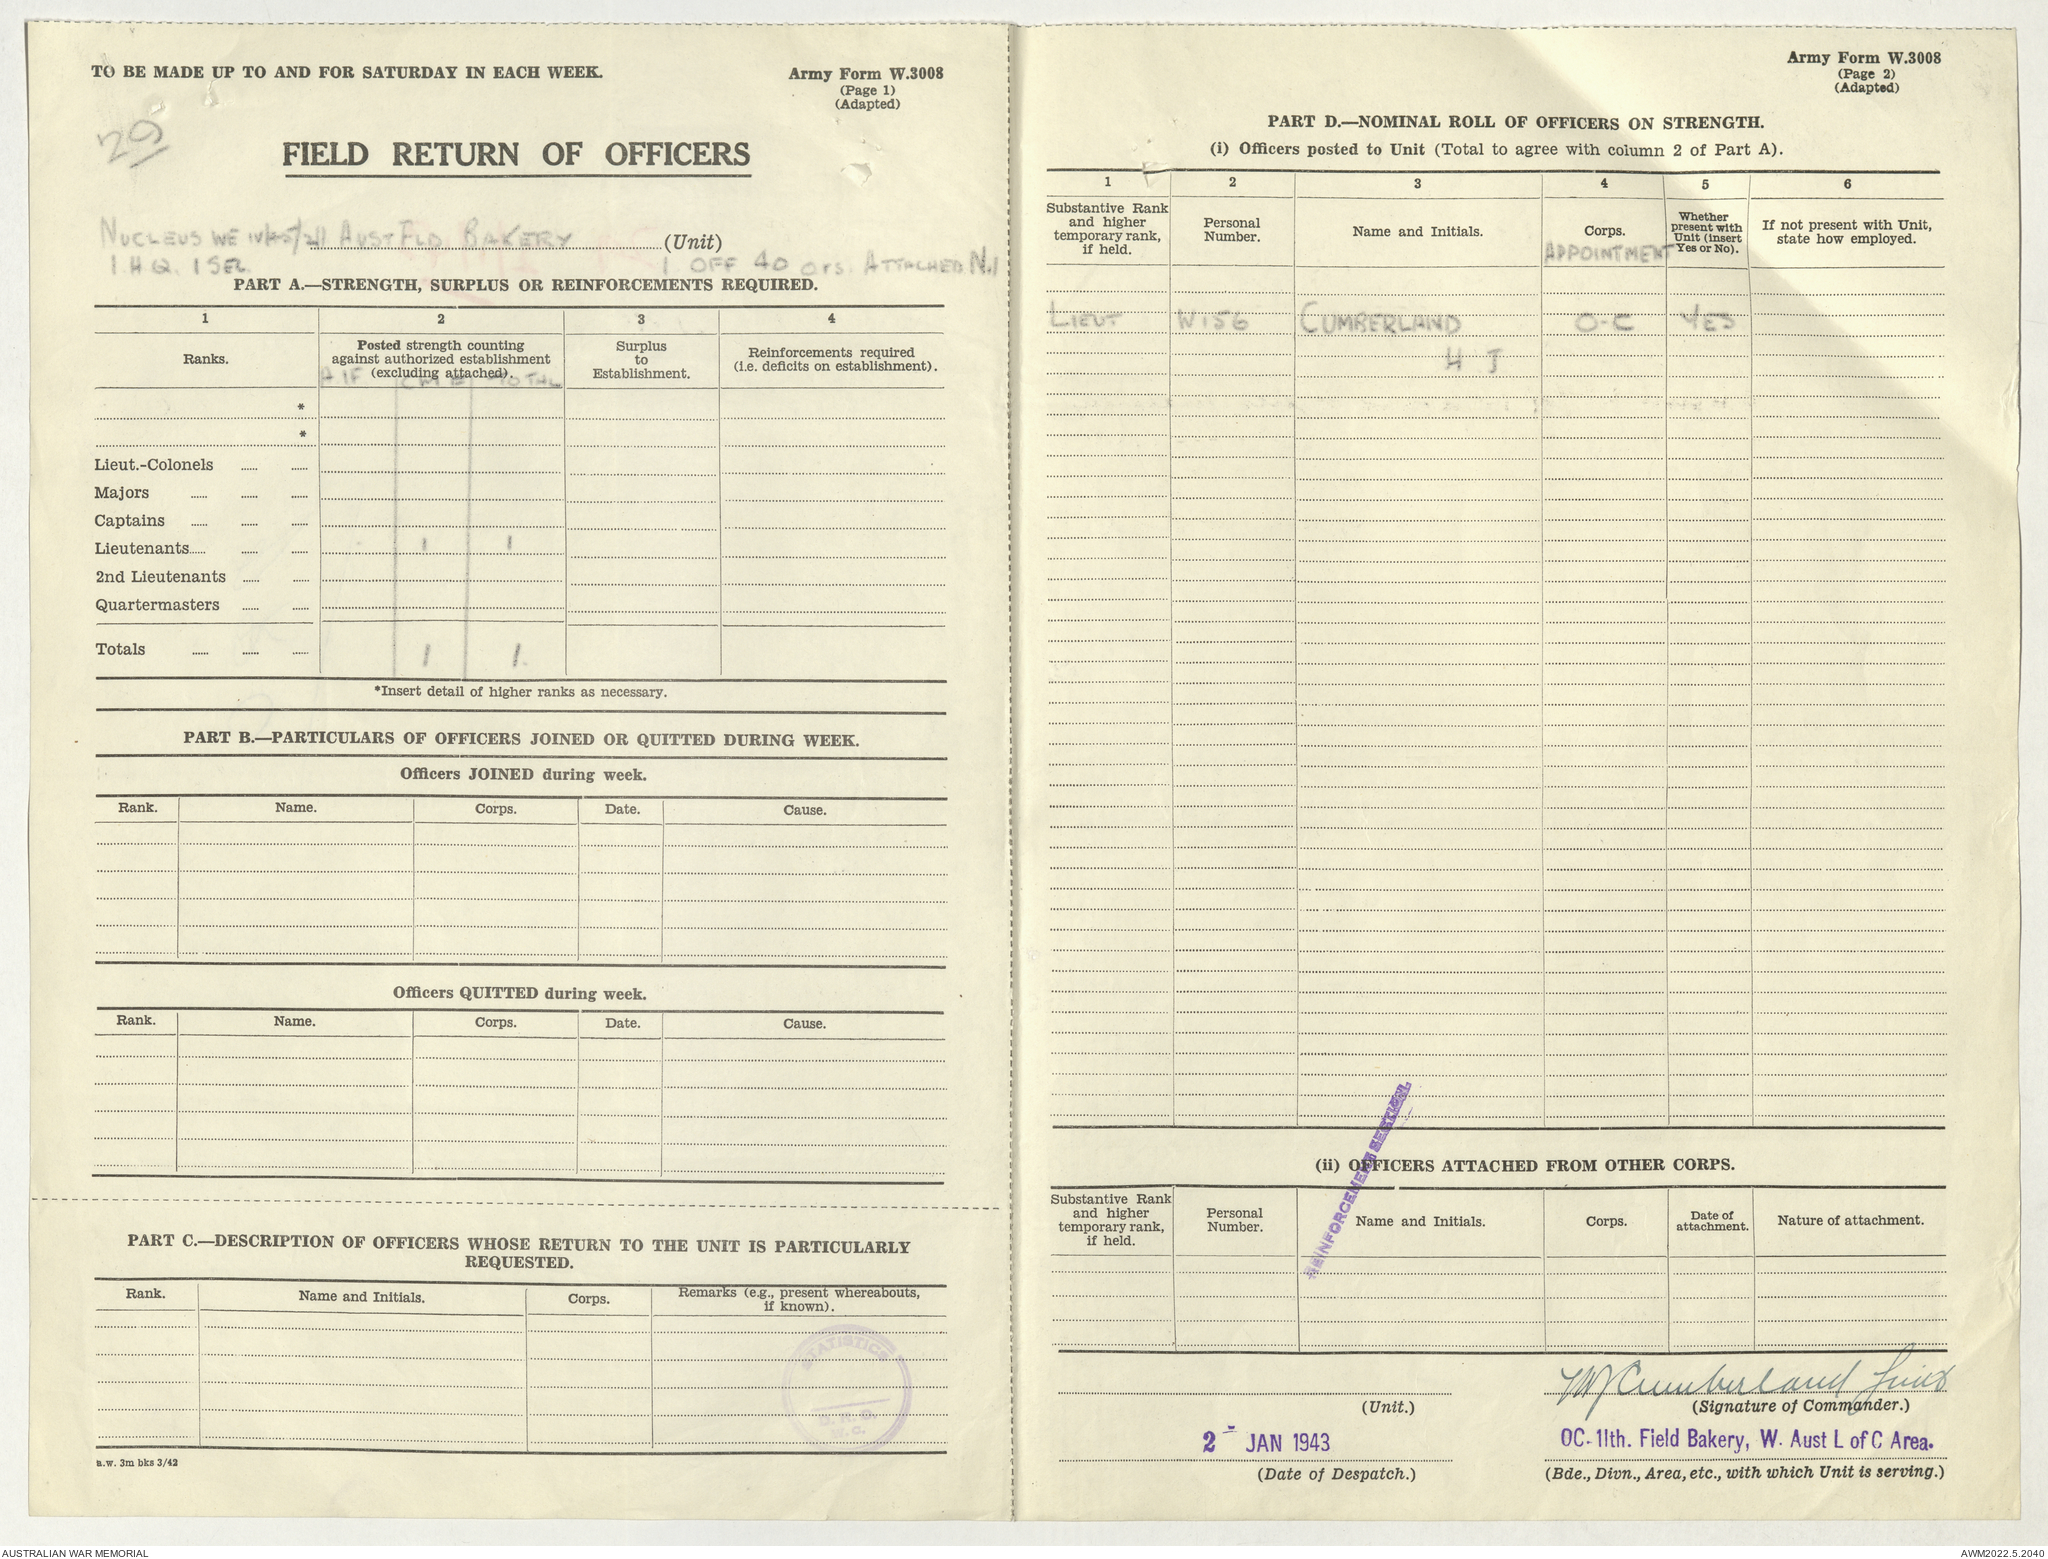 TO BE MADE UP TO AND FOR SATURDAY IN EACH WEEK.
Army Form W.3008
(Page 1)
(Adapted)
29
FIELD RETURN OF OFFICERS
NUCLEUS WE AUST FLD. BAKERY (Unit)
1 H.Q. 1 SEC 1 OFF 40 ORS. ATTACHED N.1
PART A.—STRENGTH, SURPLUS OR REINFORCEMENTS REQUIRED.
1 2 3 4
Ranks.
Posted strength counting
against authorized establishment
(excluding attached).
Surplus
to
Establishment.
Reinforcements required
(i.e. deficits on establishment).
A.I.F TOTAL
*
*
Lieut.-Colonels ...... ......
Majors ...... ...... ......
Captains ...... ...... ......
Lieutenants...... ...... ...... - 1 1
2nd Lieutenants ...... ......
Quartermasters ...... ......
Totals ...... ...... ...... 1 1.
*Insert detail of higher ranks as necessary.
PART B.—PARTICULARS OF OFFICERS JOINED OR QUITTED DURING WEEK.
Officers JOINED during week.
Rank. Name. Corps. Date. Cause.
Officers QUITTED during week.
Rank. Name. Corps. Date. Cause.
PART C.—DESCRIPTION OF OFFICERS WHOSE RETURN TO THE UNIT IS PARTICULARLY
REQUESTED.
Rank. Name and Initials. Corps. Remarks (e.g., present whereabouts,
if known).
STATISTICS
D.R.O.
W.C.
a.w. 3m bks 3/42
Army Form W.3008
(Page 2)
(Adapted)
PART D.—NOMINAL ROLL OF OFFICERS ON STRENGTH.
(i) Officers posted to Unit (Total to agree with column 2 of Part A).
1 2 3 4 5 6
Substantive Rank
and higher
temporary rank,
if held.
Personal
Number.
Name and Initials.
Corps.
APPOINTMENT
Whether
present with
Unit (insert
Yes or No).
If not present with Unit,
state how employed.
LIEUT W156 CUMBERLAND O-C YES
H J
REINFORCEMENT SECTION
(ii) OFFICERS ATTACHED FROM OTHER CORPS.
Substantive Rank
and higher
temporary rank,
if held.
Personal
Number.
Name and Initials.
Corps.
Date of
attachment.
Nature of attachment.
HJ Cumberland Lieut
(Unit.)
(Signature of Commander.)
2- JAN 1943
OC-11th. Field Bakery, W. Aust L of C Area.
(Date of Despatch.)
(Bde., Divn., Area, etc., with which Unit is serving.)
AUSTRALIAN WAR MEMORIAL
AWM2022.5.2040